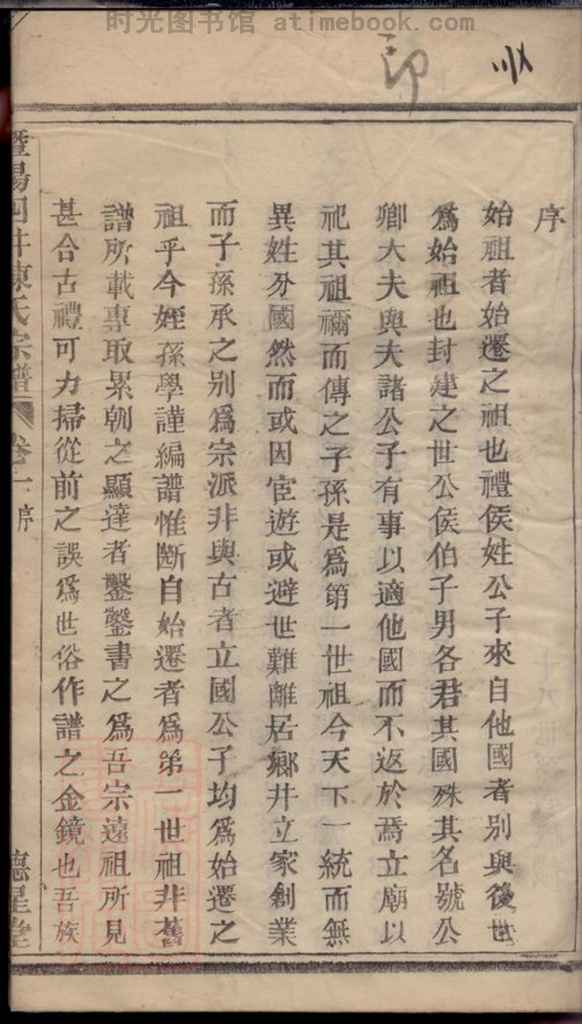 时光图书馆 atimebook.com
序
始祖者始遷之祖也禮侯姓公子來自他國者別與後世
爲始祖也封建之世公侯伯子男各君其國殊其名號公
卿大夫與夫諸公子有事以適他國而不返於焉立廟以
祀其祖禰而傳之子孫是爲第一世祖今天下一統而無
異姓分國然而或因宦遊或避世難離居鄉井立家創業
而子孫承之别爲宗派非與古者立國公子均爲始遷之
祖乎今姪孫學謹編譜惟斷自始遷者爲第一世祖非舊
譜所載專取累朝之顯達者鑿鑿書之爲吾宗遠祖所見
甚合古禮可力掃從前之誤爲世俗作譜之金鏡也吾族
暨陽四井陳氏宗譜 卷一 序 德星堂